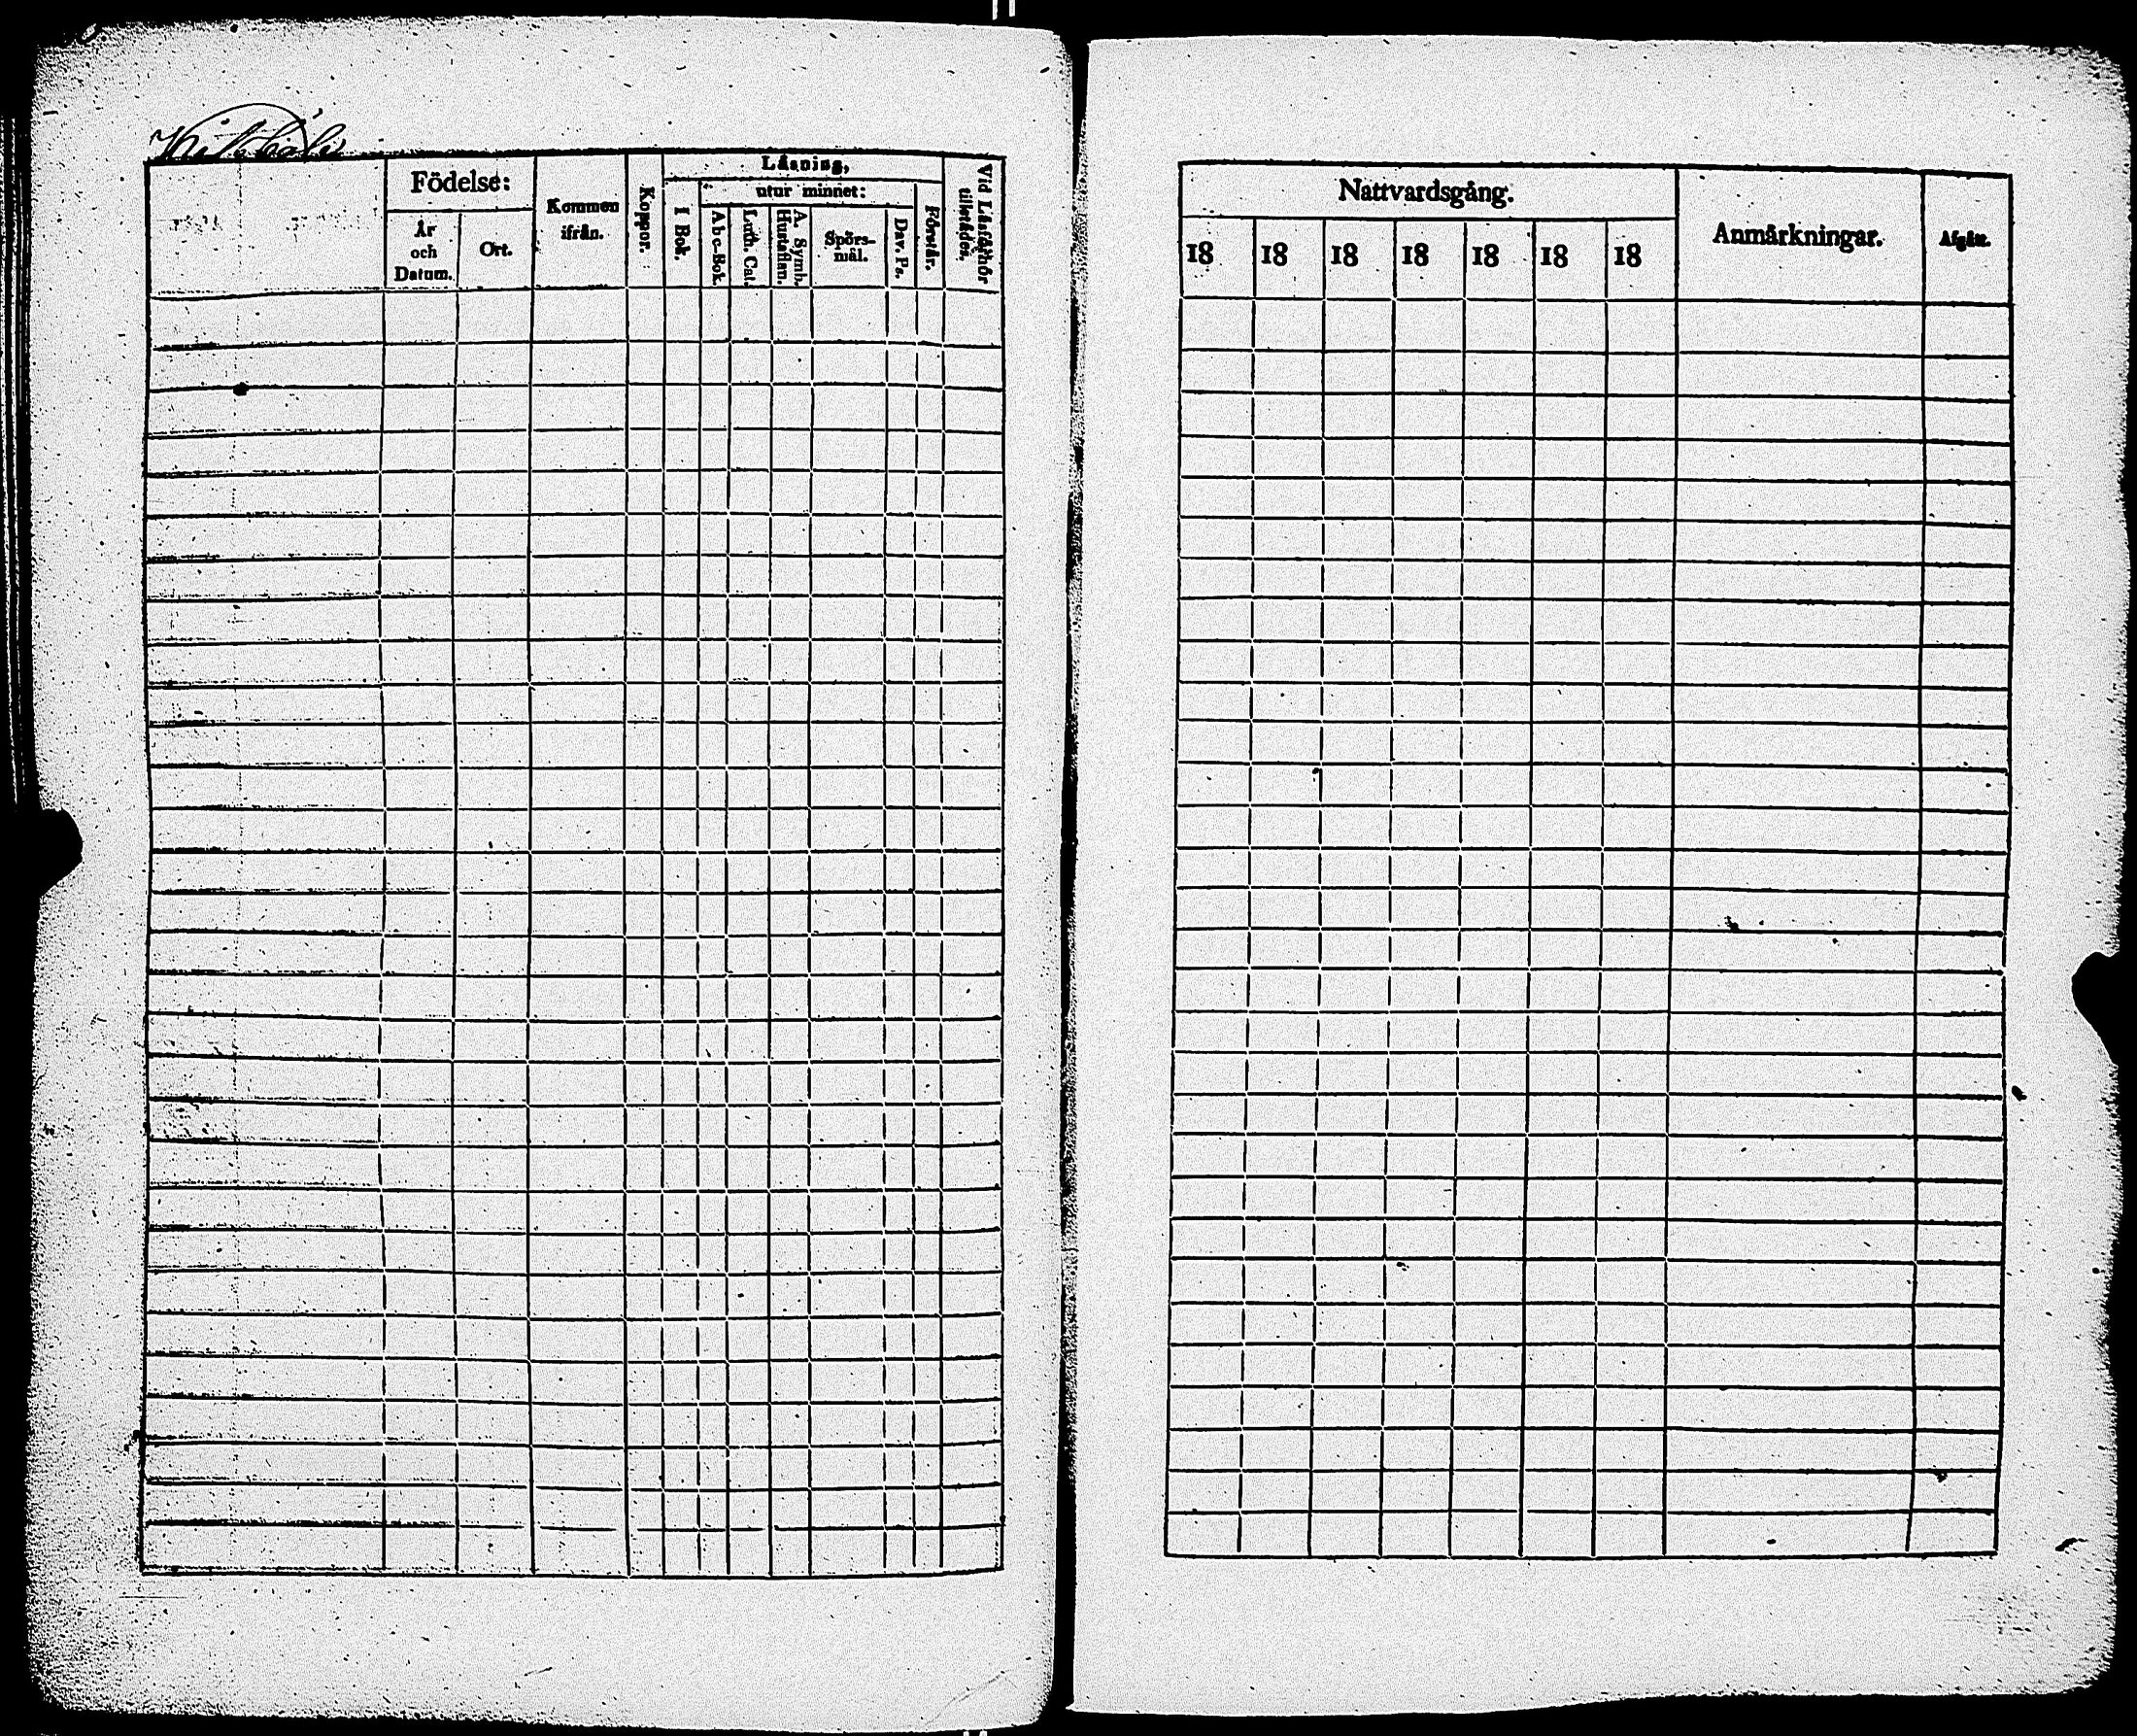 Födelse:
År
och
Datum.
Ort.
Kommen
ifrån.
Koppor.
Läsning,
I Bok.
utur minnet:
A b c-Bok.
Luth. Cat.
A. Symb.
Hustaflan.
Spörs-
mål.
Dav. Ps.
Förstår.
Vid Läsförhör
tillstädes.
Nattvardsgång.
18 18 18 18 18 18 18
Anmärkningar.
Afgått.